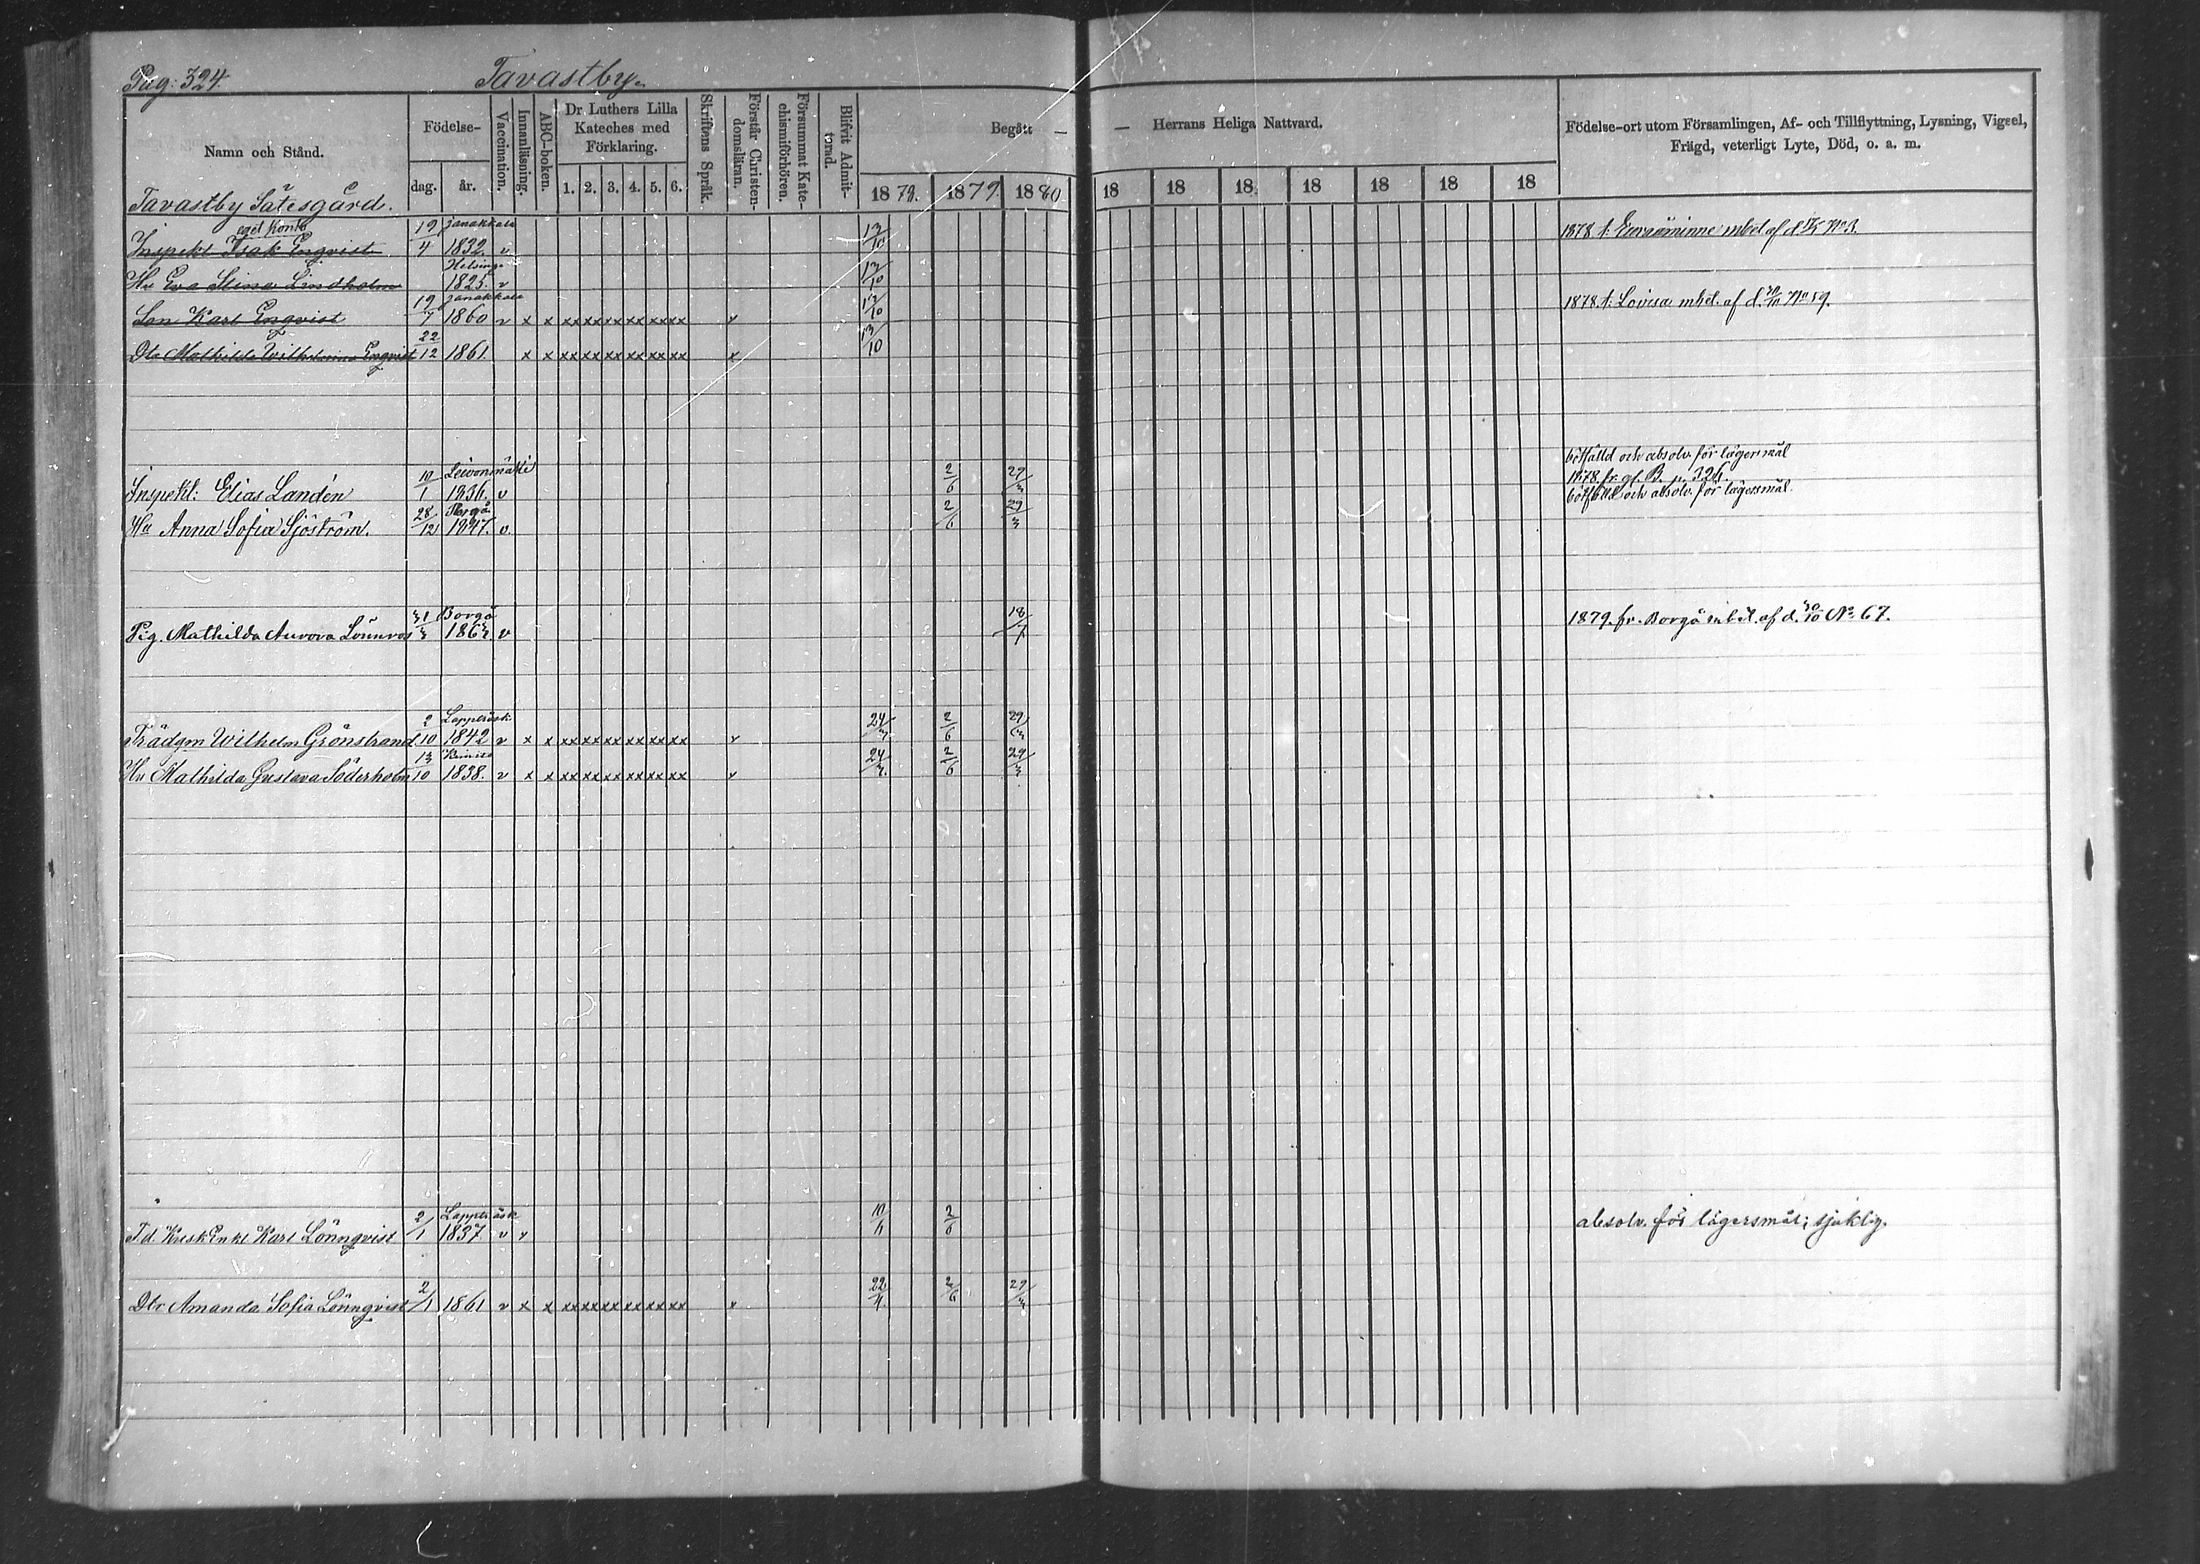 Pag: 324.
Tavastby.
Namn och Stånd.
Födelse-
dag.
år.
Vaccination.
Innanläsning.
ABC-boken.
Dr Luthers Lilla
Kateches med
Förklaring.
1. 2. 3. 4. 5. 6.
Skriftens Språk.
Förstår Christen-
domsläran.
Försummat Kate-
chismiförhören.
Blifvit Admit-
terad.
Begått —
— Herrans Heliga Nattvard.
1878. 1879. 1880
18 18 18 18 18 18 18
Födelse-ort utom Församlingen, Af- och Tillflyttning, Lysning, Vigsel,
Frägd, veterligt Lyte, Död, o. a. m.
Tavastby Sätesgård.
eget konto 19 Janakkala 13
Inspekt Isak Enqvist 4 1832. v 10
Helsinge 13
Hu Eva Stina Lindholm 1825. v 10
19 Janakkala 13 1878 t. Lovisa mbet. af d. No 59.
Son Karl Enqvist 7 1860 v x x xx xx xx xx xx xx x 10
22 13
Dtr Mathilda Wilhelmina Enqvist 12 1861. x x xx xx xx xx xx xx x 10
bötfälld och absolv. för lägersmål
10 Leivonmäki 2/6 1878. fr. p. 326
Inspekt: Elias Landén 1 1836. v
bötfälld och absolv. för lägersmål.
28 Borgå 2/6 29/3
Hu Anna Sofia Sjöström. 12 1847. v.
31 Borgå 18 1879. fr. Borgå mbet. af d. 30/10 No 67.
Pig. Mathilda Aurora Lönnros 3 1863 v
2 Lappträsk 24 2/6 29/3
Trädgm Wilhelm Grönstrand 10 1842 v x x xx xx xx xx xx xx x
13 24 2/6 29/3
Hu Mathilda Gustava Söderholm 10 1838. v x x xx xx xx xx xx xx x
2 Lappträsk 10 2/6 absolv. för lägersmål; sjuklig.
Enkl Karl Lönnqvist 1 1837 v
2 22 2/6 29/3
Dtr Amanda Sofia Lönnqvist 1 1861 v x x xx xx xx xx xx xx x 4.